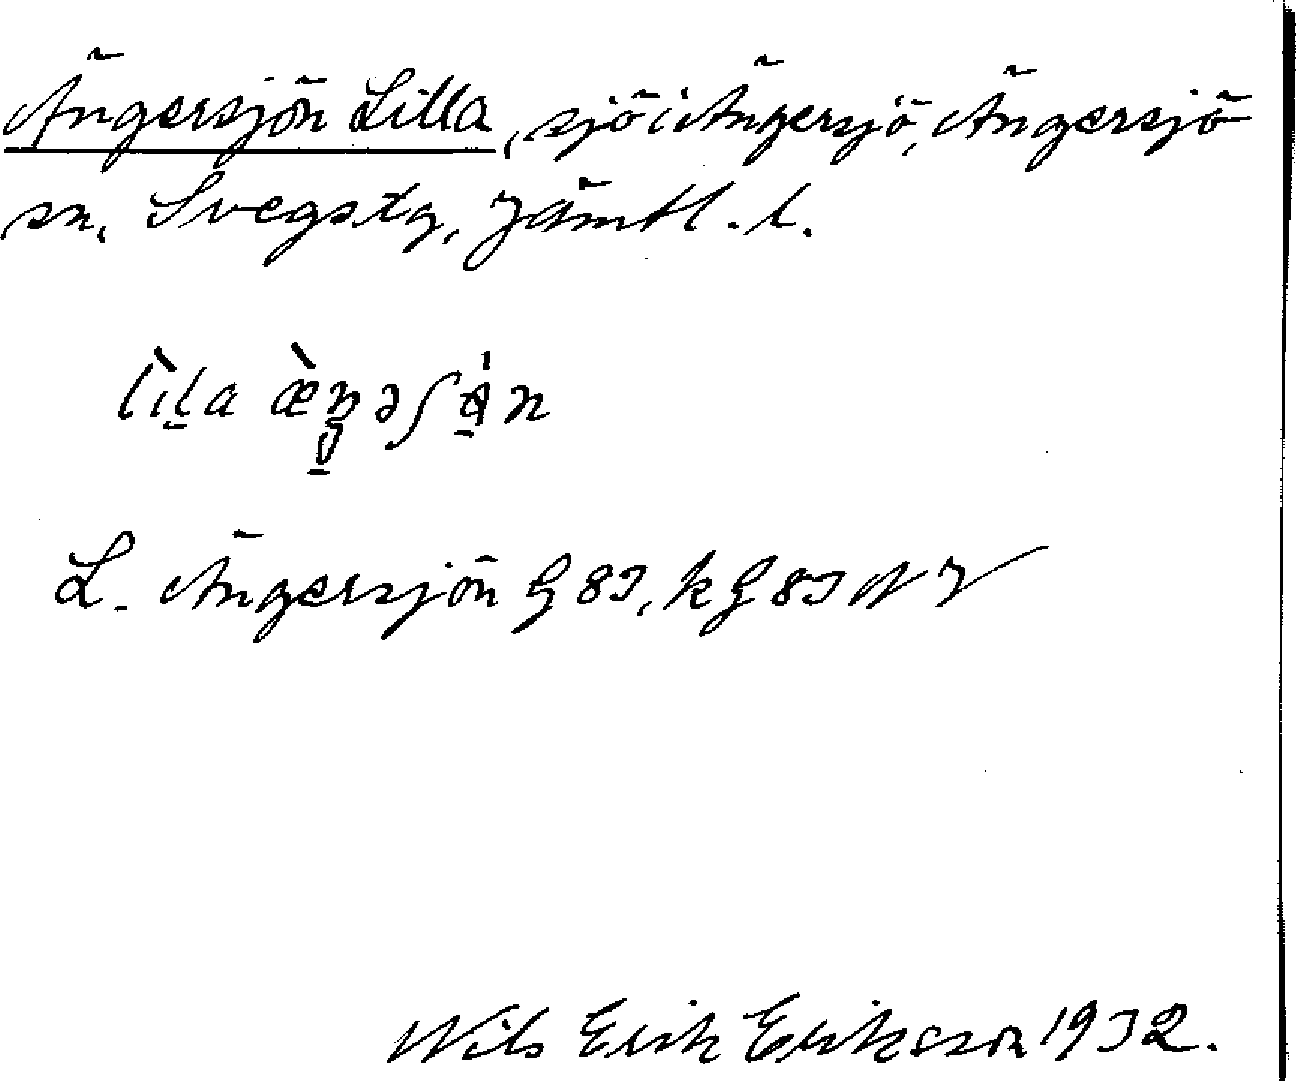 Ängersjön Lilla, sjö i Ängersjö, Ängersjö
sn, Svegs tg, Jämtl. l.
lìla æ̀ŋəʃɵ́n
L. Ängersjön G 83, k G 83 NV
Nils Erik Eriksson 1932.